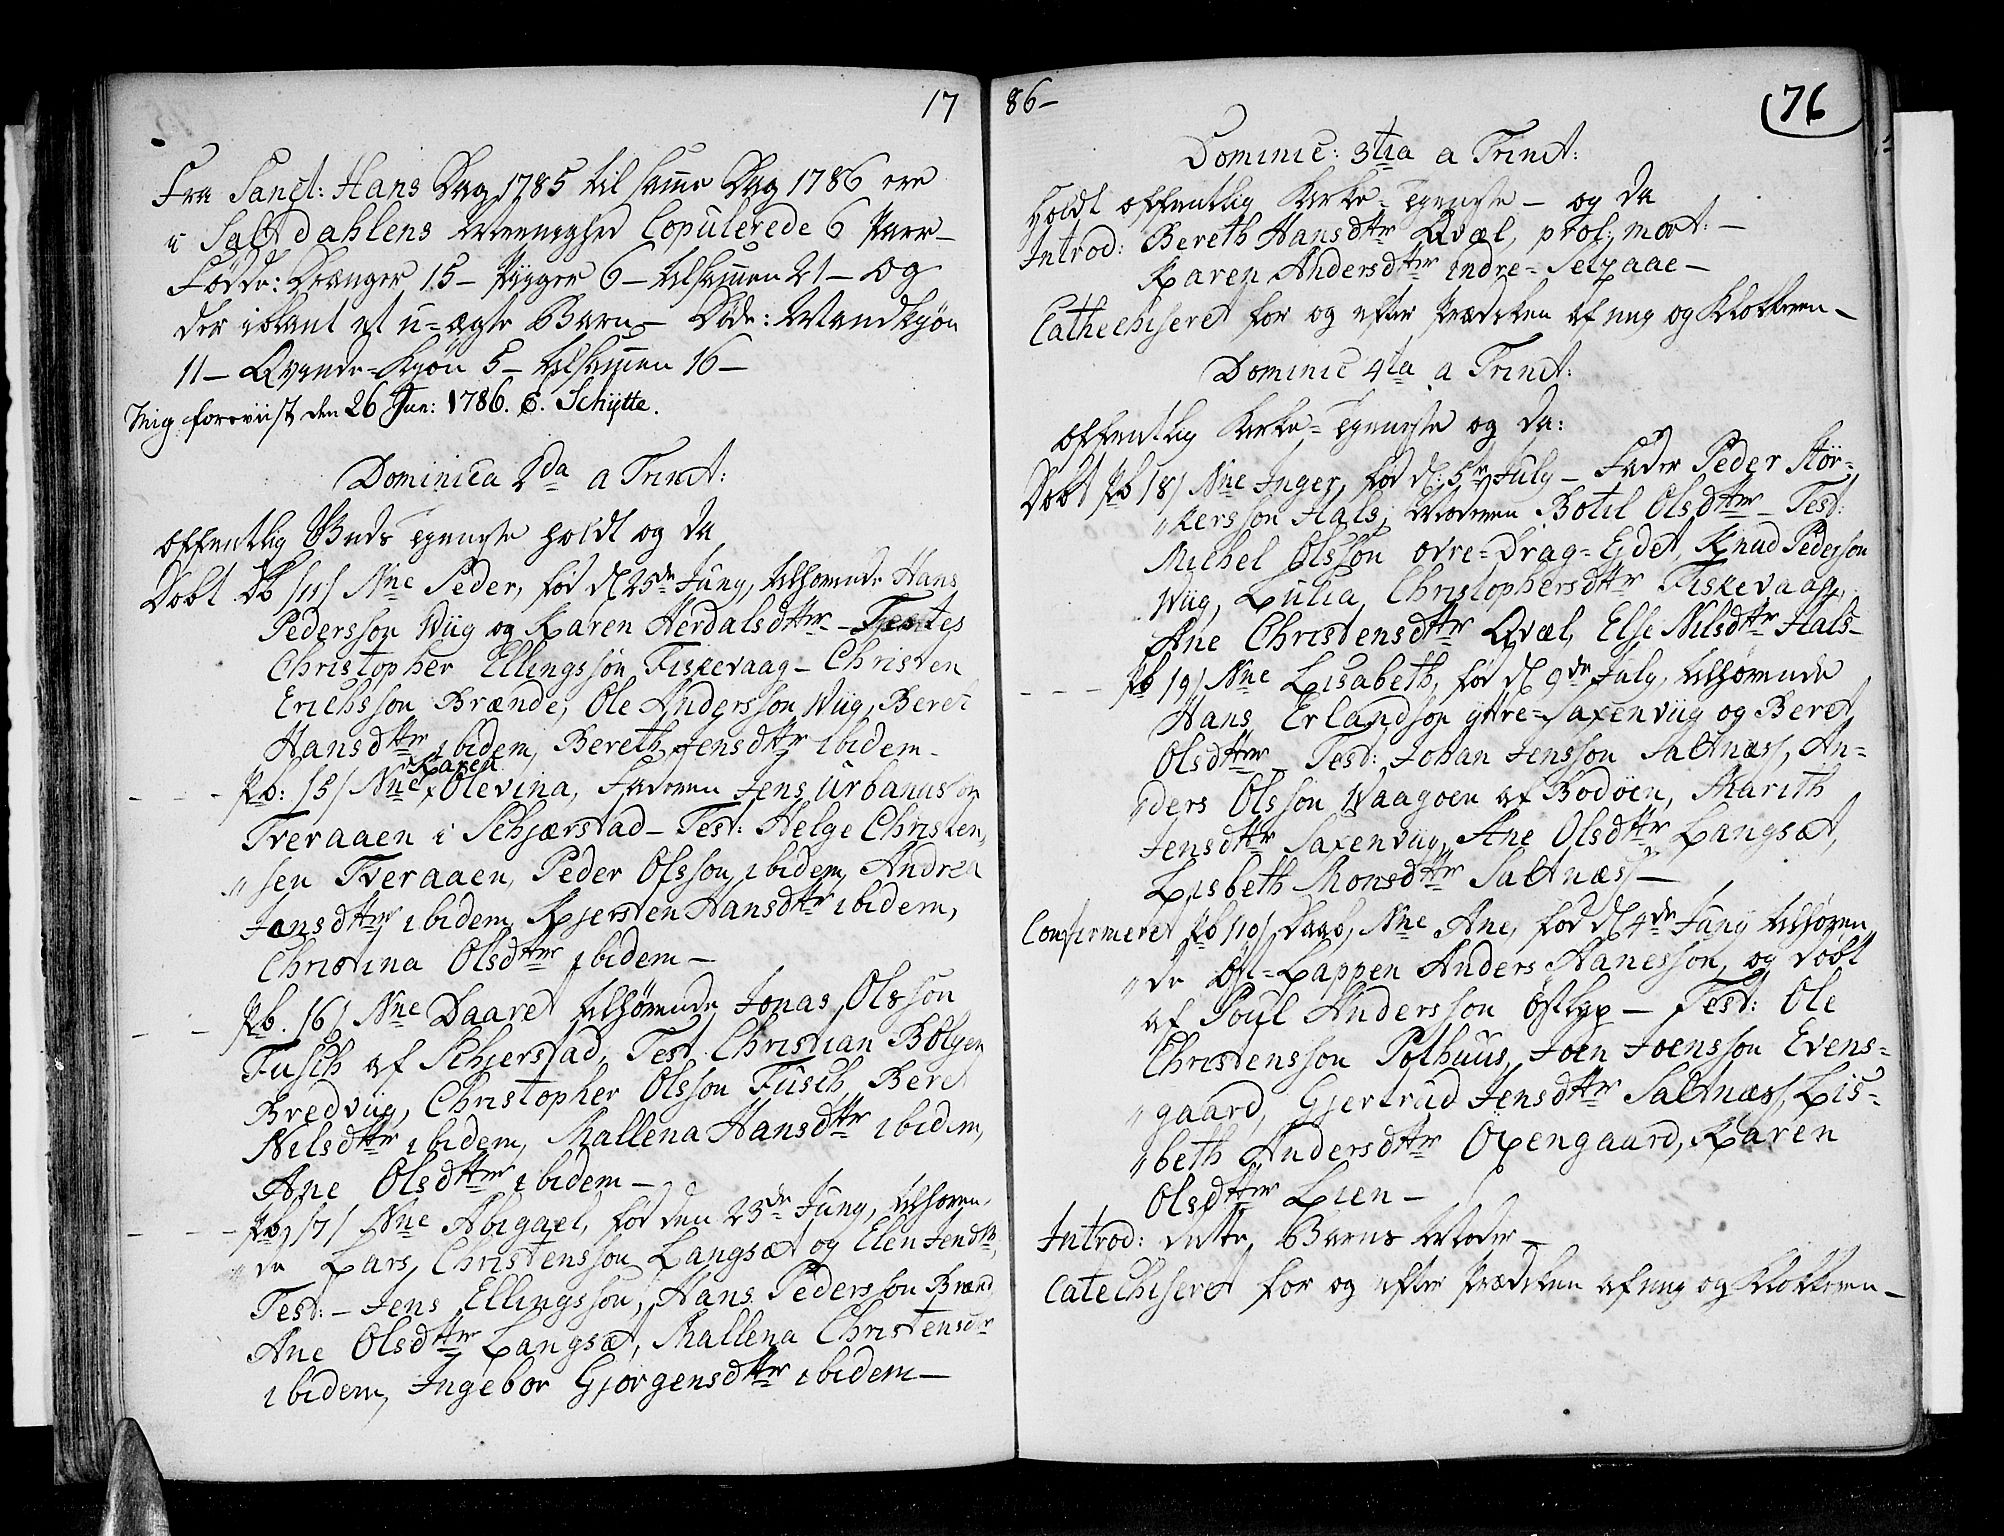 17
Fra Sanct: Hans Dag 1785 til samme Dag 1786 ere
i Saltdahlens Meenighed Copulerede 6 Parr-
Fødde: Drænger 15- Piiger 6- tilsammen 21- og
der iblant et u-ægte Barn- Døde: Mandkjön
11- Qvinde-Kjön 5- tilsammen 16-
Mig foreviist den 26 Jun: 1786. E. Schytte.
Dominica 2da a Trinit:
offentlig Guds Tjeneste holdt og da
Dobt Db /11/ Nne Peder, fød d 25de Juny, tilhørende Hans
Pedersson Wiig og Karen Herdalsdttr - Testes
Christopher Ellingssön Fiskevaag - Christen
Erichsson Brænde, Ole Andersson Wiig, Beret
Hansdttr ibidem, Bereth Jensdttr ibidem-
- - - Pb: 15/ Nne Karen Olevina, Faderen Jens Urbanusson
Tveraaen i Schjærstad - Test: Helge Christen
" sen Tveraaen, Peder Olsson ibidem, Andrea
Jansdttr ibidem, Kjersten Hansdttr ibidem,
Christina Olsdttr ibidem-
- - Pb. 16/ Nne Daaret tilhørende Jonas Olsson
Fusch af Schjerstad, Test Christian Bolgen
Bredviig, Christopher Olsson Fusch, Beret
Nilsdttr ibidem, Mallena Hansdttr ibidem,
Ane Olsdttr ibidem-
- - - Pb, 17/ Nne Abigael, fød den 23de Juny, tilhøren-
" de Lars Christensson Langsæt og Elen Jensdtt,
Test: - Jens Ellingsson, Hans Pedersson Brænd
Ane Olsdttr Langsæt, Mallena Christensdr
ibidem, Ingebor Gjörgensdttr ibidem-
86-
76
Dominic: 3tia a Trinit:
Holdt offentlig Kirke-Tjeneste - og da
Introd: Bereth Hansdttr Qvæl, prol: mort: -
Karen Andersdttr indre-Setzaae-
Cathechiseret før og efter Prædiken af mig og Klokkeren-
Dominic 4ta a Trinit:
offentlig Kirke-Tjeneste og da:
Dobt Pb /18/ Nne Inger, fød d: 5te July - Fader Peder Stör-
" kersson Hals, Moderen Botil Olsdttr - Test:
Michel Olsson øvre-Drag-Ejdet, Knud Pedersson
Wiig, Lulia Christophersdttr Fiskevaag,
Ane Christensdttr Qvæl, Else Nilsdttr Hals-
- - - Pb 19/ Nne Lisabeth, fød d 9de July, tilhørende
Hans Erlandson yttre-Saxenviig og Beret
Olsdttr - Test: Johan Jensson Saltnæss, An-
" ders Olsson Waagoen af Bodöen, Marith
Jensdttr Saxenviig, Ane Olsdttr Langsæt,
Lisbeth Monsdttr Saltnæss-
Confirmeret Pb /10/ Daab, Nne Ane, fød d 4de Juny tilhøren
" de Øst-Lappen Anders Hanesson, og döbt
af Poul Andersson Østlap - Test: Ole
Christensson Pothuus, Joen Joensson Evens-
" gaard, Gjertrud Jensdttr Saltnæss, Lis-
" beth Andersdttr Oxengaard, Karen
Olsdttr Lien-
Introd: dette Barns Moder-
Catechiseret før og efter Prædiken af mig og Klokkeren-